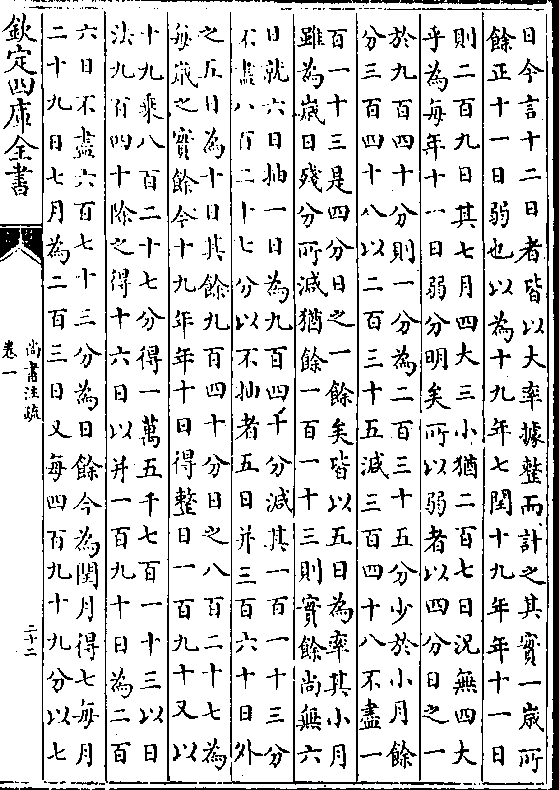 日今言十二日者皆以大率據整而計之其實一歲所
餘正十一日弱也以為十九年七閏十九年年十一日
則二百九日其七月四大三小猶二百七日況無四大
乎為每年十一日弱分明矣所以弱者以四分日之一
於九百四十分則一分為二百三十五分少於小月餘
分三百四十八以二百三十五減三百四十八不盡一
百一十三是四分日之一餘矣皆以五日為率其小月
雖為歲日殘分所減猶餘一百一十三則實餘尚無六
日就六日抽一日為九百四十分減其一百一十三分
不盡八百二十七分以不抽者五日并三百六十日外
之五日為十日其餘九百四十分日之八百二十七為
每歲之實餘今十九年年十日得整日一百九十又以
十九乘八百二十七分得一萬五千七百一十三以日
法九百四十除之得十六日以并一百九十日為二百
六日不盡六百七十三分為日餘今為閏月得七每月
二十九日七月為二百三日又每四百九十九分以七
欽定四庫全書
尚書注疏
卷一
二十二